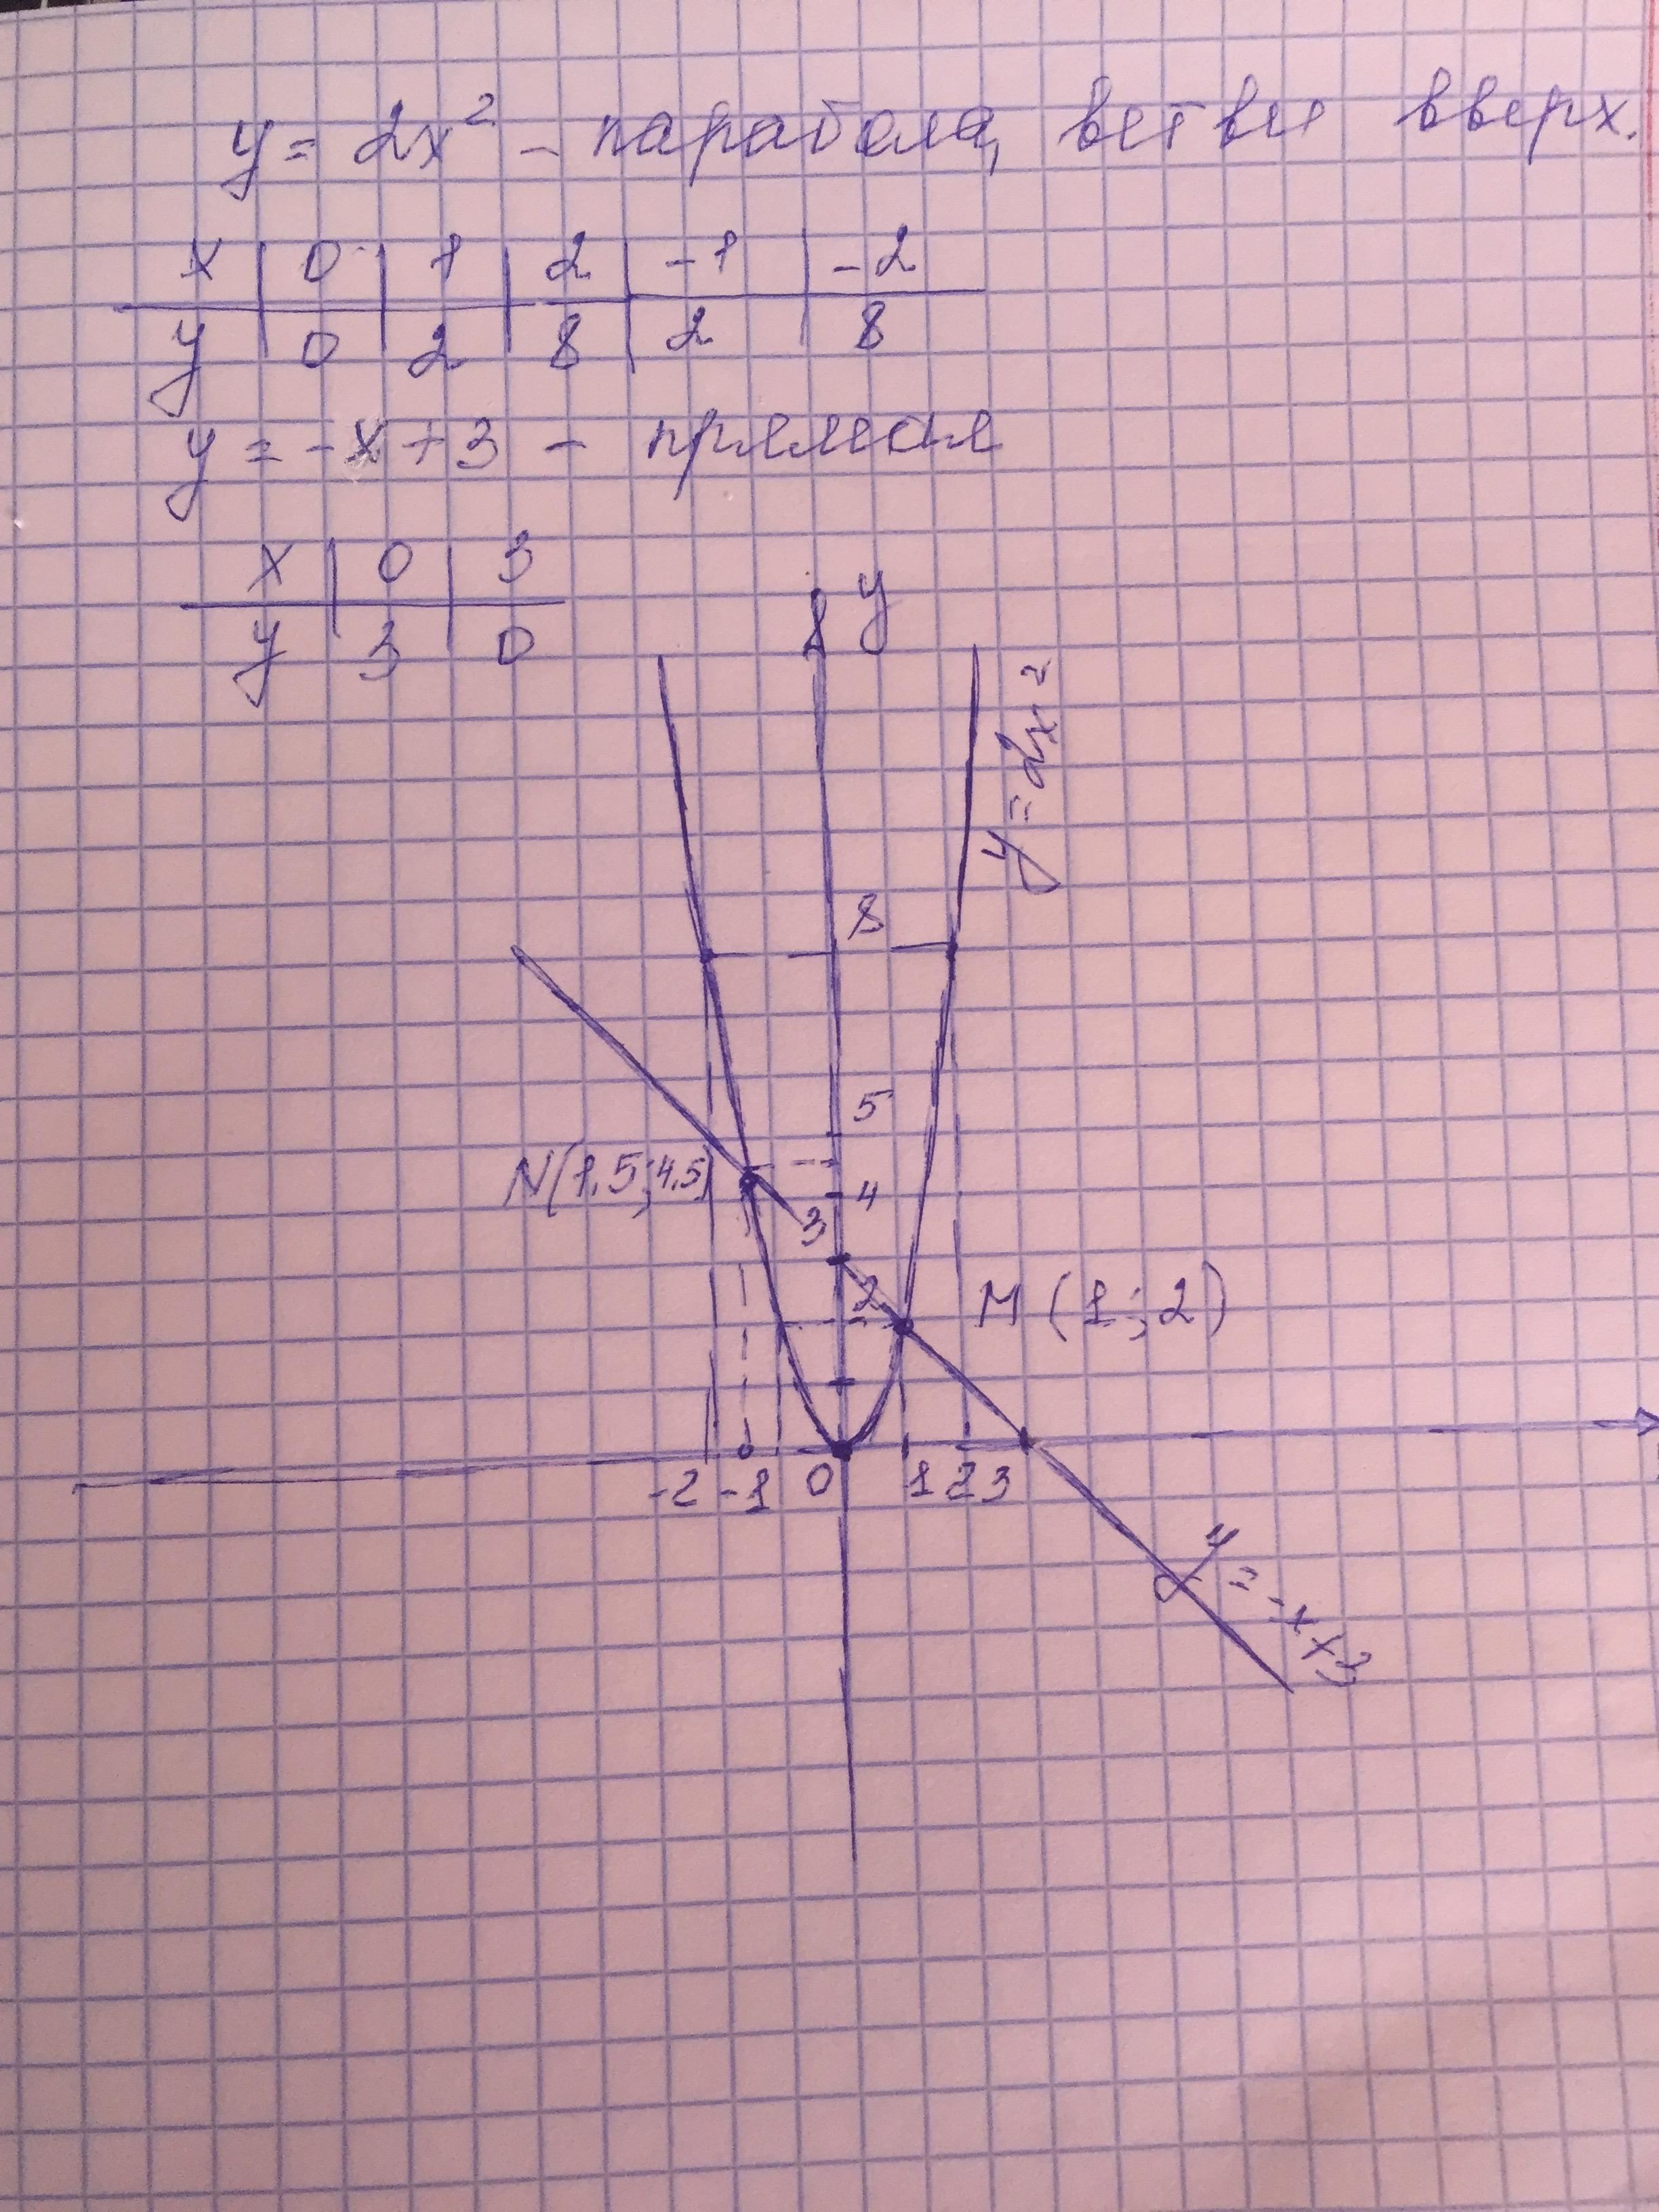 y = 2x² – парабола, ветви вверх.
x | 0 | 1 | 2 | -1 | -2
y | 0 | 2 | 8 | 2 | 8
y = -x + 3 – прямая
x | 0 | 3
y | 3 | 0
y
y = 2x²
8
5
N(1,5; 4,5)
4
3
2
M (1; 2)
-2 -1 0 1 2 3
y = -x+3